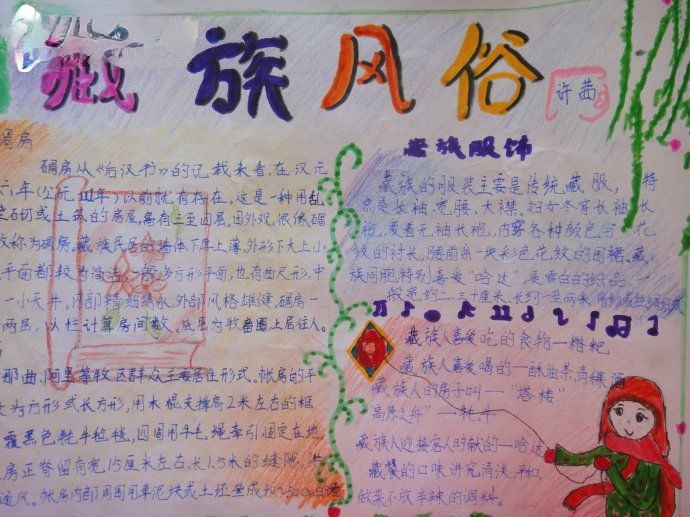 藏族风俗
许茜
碉房
碉房从《后汉书》的记载来看,在汉元
六年(公元111年)以前就有存在。这是一种用乱
石砌或土筑的房屋,高有三至四层。因外观很像碉
故称为碉房。藏族民居的墙体下厚上薄,外形下大上小,
平面都较为简洁,一般为方形平面,也有曲尺形,中
一小天井。内部精细隽永,外部风格雄健,碉房一
两层,以柱计算房间数。底层为牧畜圈上层住人。
那曲、阿里等牧区群众主要居住形式。帐房的平
为方形或长方形,用木棍支撑高2米左右的框
覆黑色牦牛毡毯,四周用牛毛绳牵引固定在地
房正脊留有宽15厘米左右,长1.5米的缝隙,
通风。帐房内部周围用草泥块或土坯垒成
藏族服饰
藏族的服装主要是传统藏服,特
点是长袖、宽腰、大襟。妇女冬穿长袖长
袍,夏着无袖长袍,内穿各种颜色与花
纹的衬长,腰前系一块彩色花纹的围裙。藏
族同胞特别喜爱“哈达”,是雪白的织品,一
般宽约二、三十厘米、长约一至两米,用纱或丝绸织成
藏族人喜爱吃的食物一糌粑
藏族人喜爱喝的一酥油茶,青稞酒
藏族人的房子叫一“塔楼”
高原之舟”一牦牛
藏族人迎接客人时献的一哈达
藏餐的口味讲究清淡、平和,
做菜不放辛辣的调料。